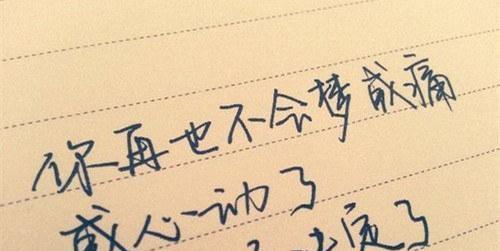 你再也不会梦或痛
或心动了
了